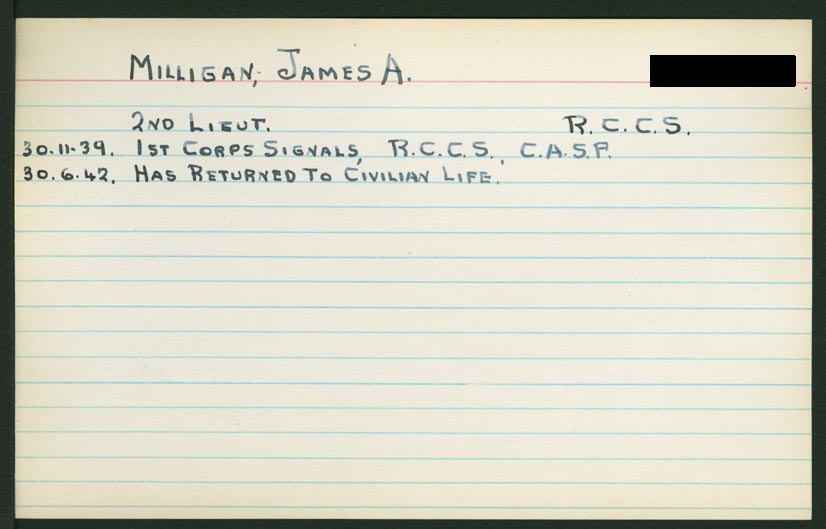 MILLIGAN, JAMES A.
2ND LIEUT. R.C.C.S.
30.11.39. 1ST CORPS SIGNALS, R.C.C.S., C.A.S.F.
30.6.42. HAS RETURNED TO CIVILIAN LIFE.